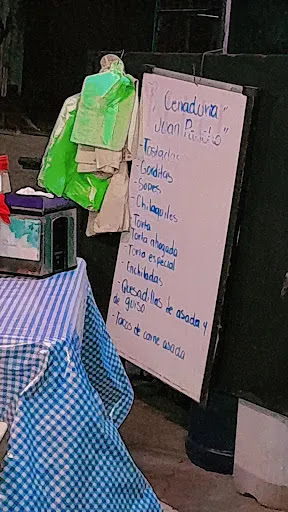 "Cenaduria
Juan Pachito"
-Tostadas
-Gorditas
-Sopes
-Chilaquiles
-Torta
-Torta ahogada
-Torta especial
-Enchiladas
-Quesadillas de asada y
de guiso
-Tacos de carne asada